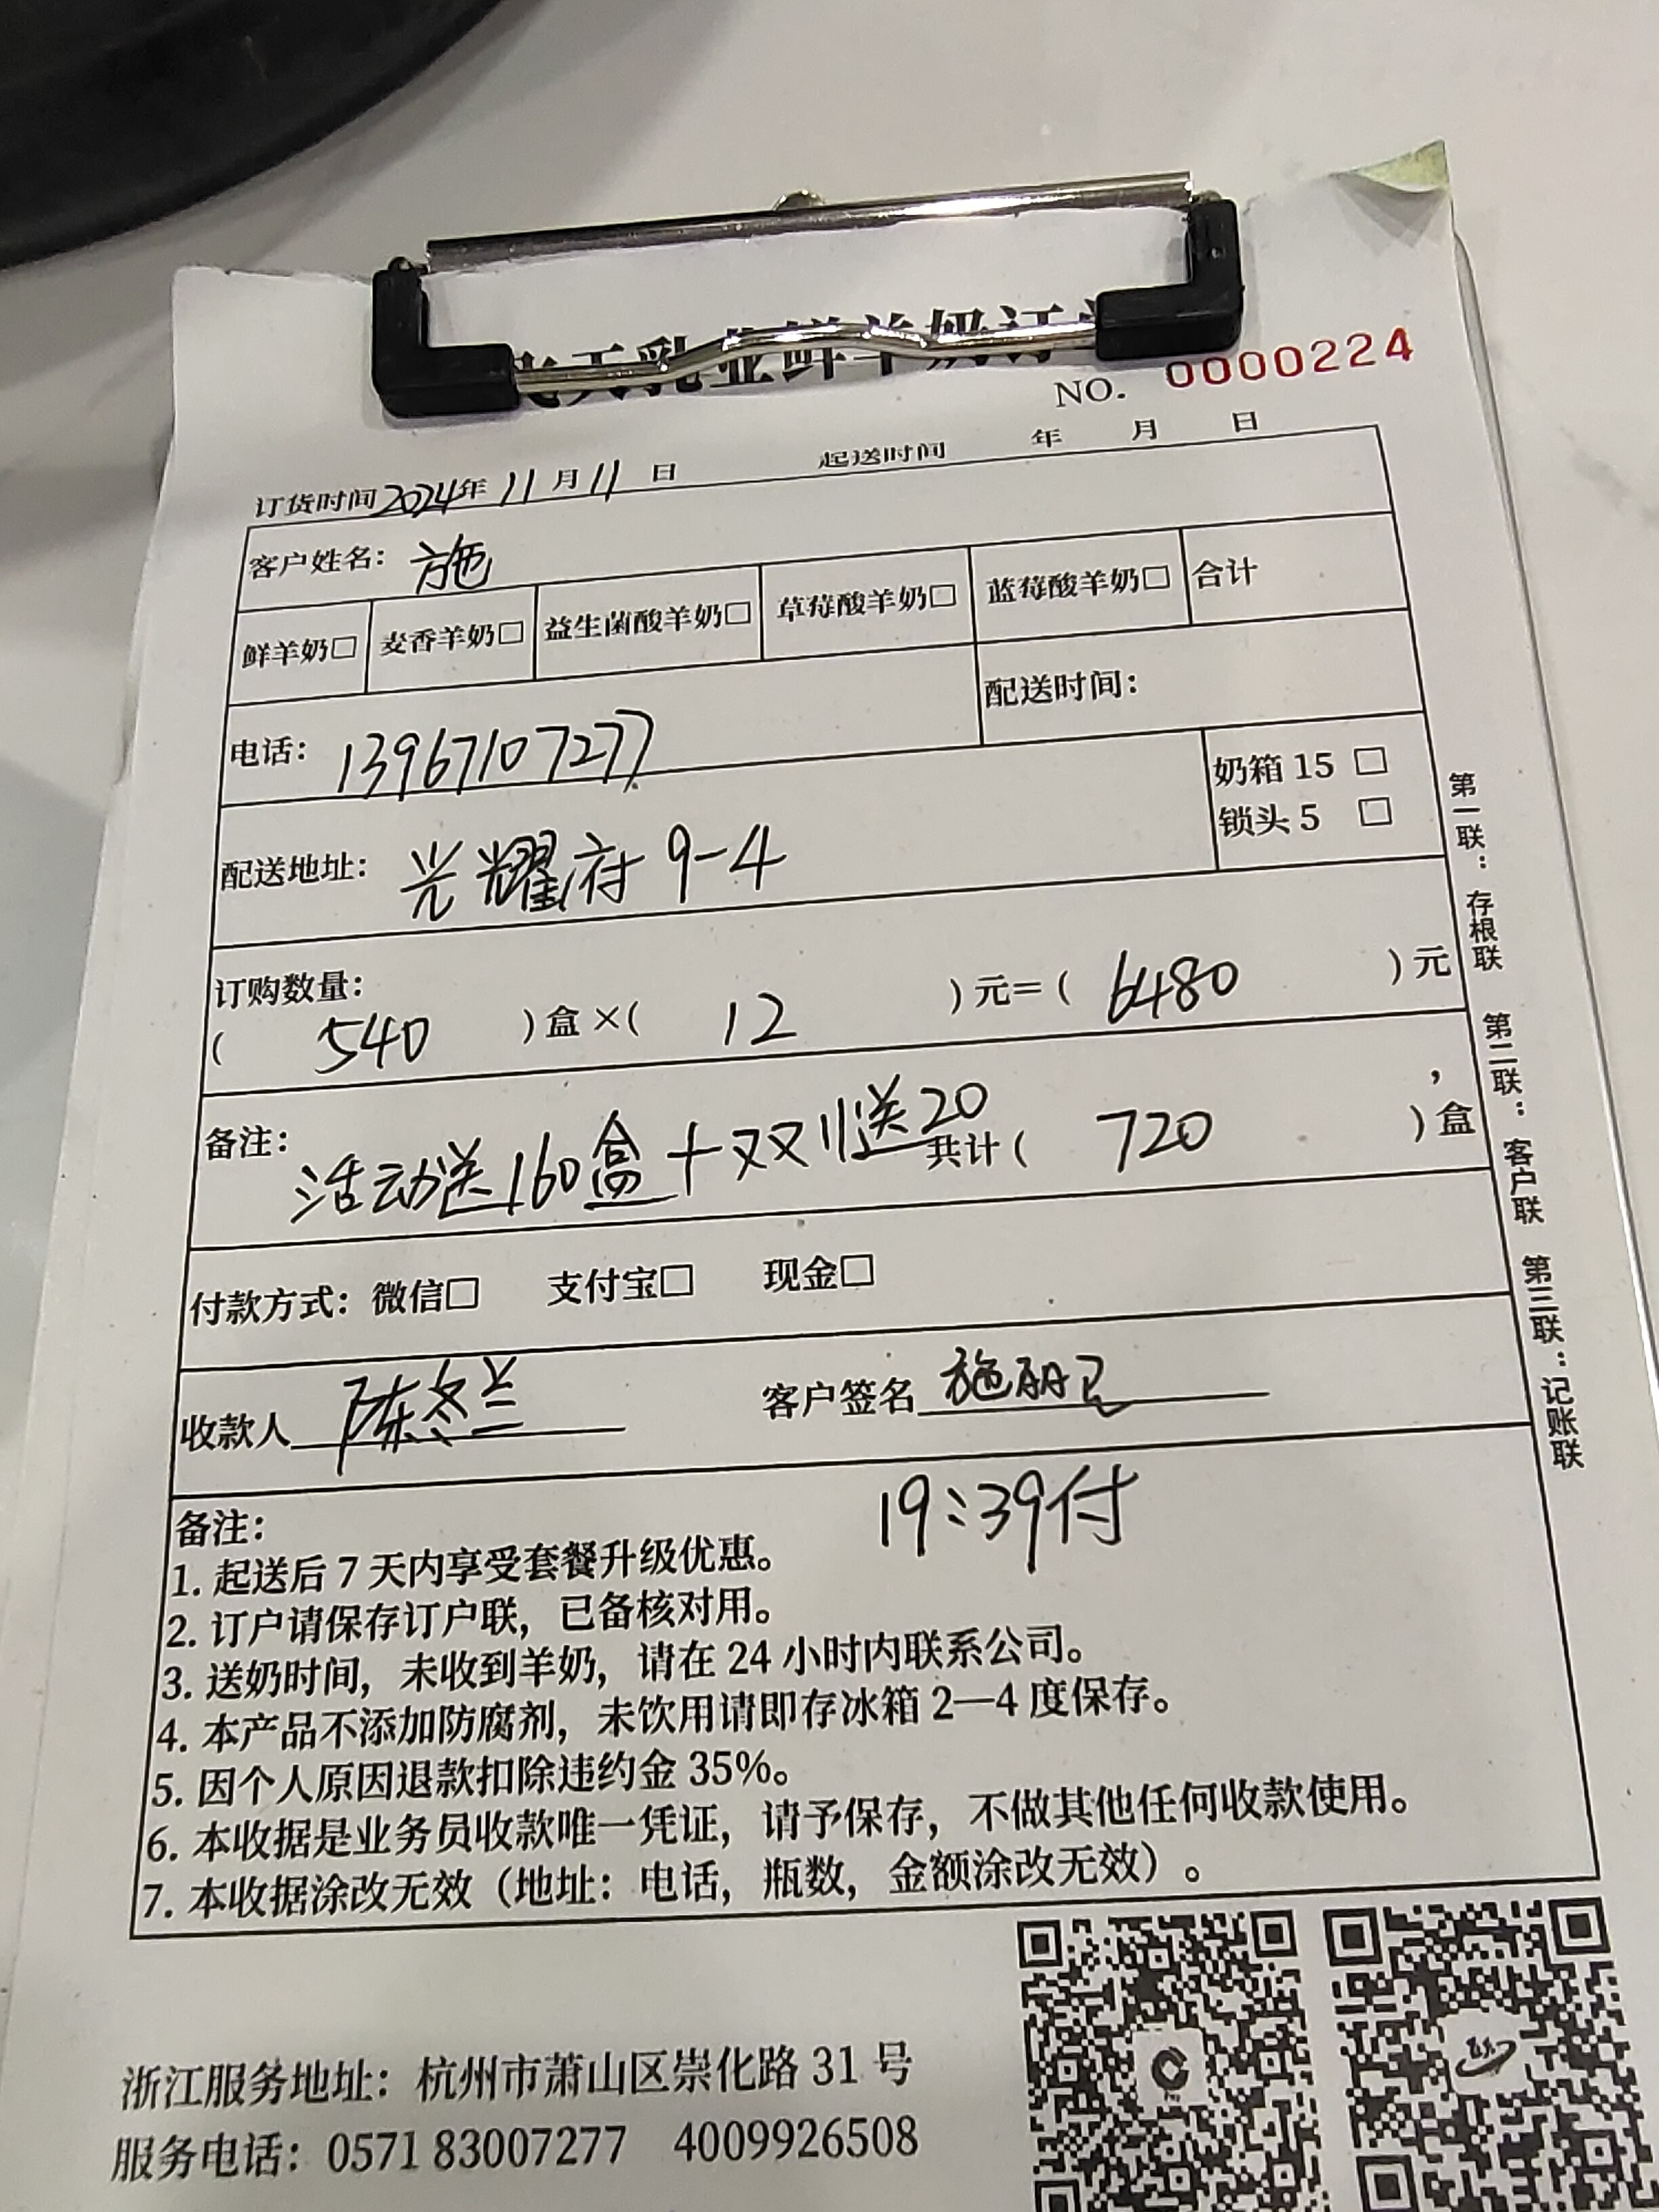 飞天乳业鲜羊奶订
NO. 0000224
订货时间 2024年 11月 11日 起送时间 年 月 日
客户姓名: 施
鲜羊奶□ 麦香羊奶□ 益生菌酸羊奶□ 草莓酸羊奶□ 蓝莓酸羊奶□ 合计
电话: 13967107277 配送时间:
配送地址: 光耀府 9-4
奶箱 15 □
锁头 5 □
订购数量:
( 540 )盒×( 12 )元=( 6480 )元
备注: 活动送160盒+双11送20 共计( 720 )盒,
付款方式: 微信□ 支付宝□ 现金□
收款人 陈冬兰 客户签名 施
19:39付
备注:
1. 起送后 7 天内享受套餐升级优惠。
2. 订户请保存订户联, 已备核对用。
3. 送奶时间, 未收到羊奶, 请在 24 小时内联系公司。
4. 本产品不添加防腐剂, 未饮用请即存冰箱 2—4 度保存。
5. 因个人原因退款扣除违约金 35%。
6. 本收据是业务员收款唯一凭证, 请予保存, 不做其他任何收款使用。
7. 本收据涂改无效 (地址: 电话, 瓶数, 金额涂改无效) 。
第一联: 存根联 第二联: 客户联 第三联: 记账联
浙江服务地址: 杭州市萧山区崇化路 31 号
服务电话: 0571 83007277 4009926508